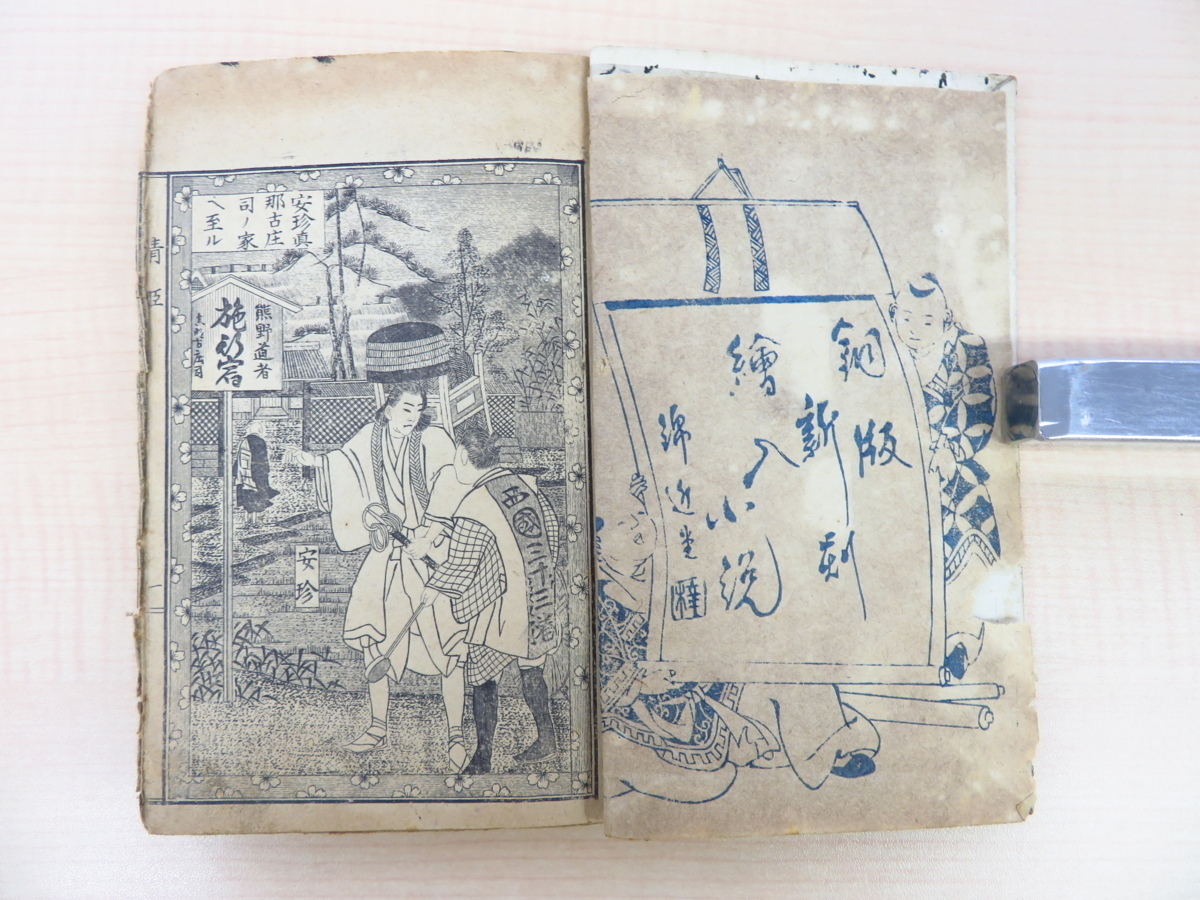 銅版
新刻
繪入小説
錦近堂
梓
安珍眞
那古庄
司ノ家
へ至ル
熊野道者
施行宿
安珍
西國三十三番
清姫